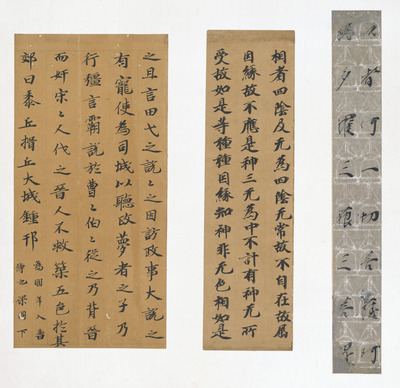 一切
多羅三藐三
相者四陰及无為四陰无常故不自在故属
因緣故不應是神三无為中不計有神无所
受故如是等種種因緣知神非无色相如是
之且言田弋之說〻之因訪政事大說之
有寵使為司城以聽政夢者之子乃
行彊言霸說於曹〻伯〻從之乃背晉
而奸宋〻人伐之晉人不救築五邑於其
郊曰黍丘揖丘大城鍾邘